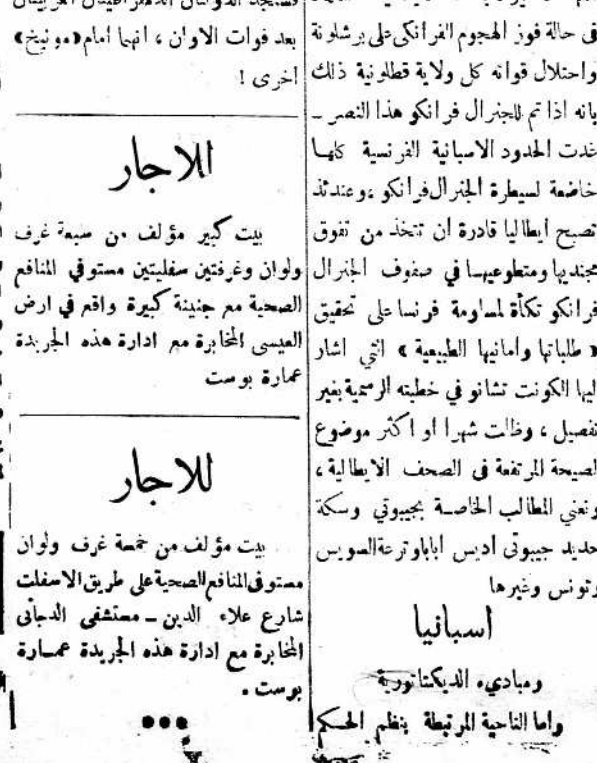 في حالة فوز الهجوم الفرانكي على برشلونة
واحتلال قواته كل ولاية قطلونية ذلك
بانه اذا تم للجنرال فرانكو هذا النصر ـ
غدت الحدود الاسبانية الفرنسية كلها
خاضعة لسيطرة الجنرال فرانكو ، وعندئذ
تصبح ايطاليا قادرة ان تتخذ من تفوق
مجنديها ومتطوعيها في صفوف الجنرال
فرانكو تكأة لمساومة فرنسا على تحقيق
« طلباتها وامانيها الطبيعية » التي اشار
اليها الكونت تشانو في خطبته الرسمية بغير
تفصيل ، وظلت شهرا او اكثر موضوع
لصيحة المرتفعة في الصحف الايطالية ،
ونعني المطالب الخاصة بجيبوتي وسكة
حديد جيبوتي اديس ابابا وترعة السويس
وتونس وغيرها
اسبانيا
ومباديء الديكتاتورية
واما الناحية المرتبطة بنظم الحكم
بعد فوات الاوان ، انهما امام «مونيخ»
اخرى !
للاجار
بيت كبير مؤلف من سبعة غرف
ولوان وغرفتين سفليتين مستوفي المنافع
الصحية مع جنينة كبيرة واقع في ارض
العيسى المخابرة مع ادارة هذه الجريدة
عمارة بوست
للاجار
بيت مؤلف من خمسة غرف ولوان
مستوفي المنافع الصحية على طريق الاسفلت
شارع علاء الدين ـ مستشفى الدجاني
المخابرة مع ادارة هذه الجريدة عمارة
بوست .